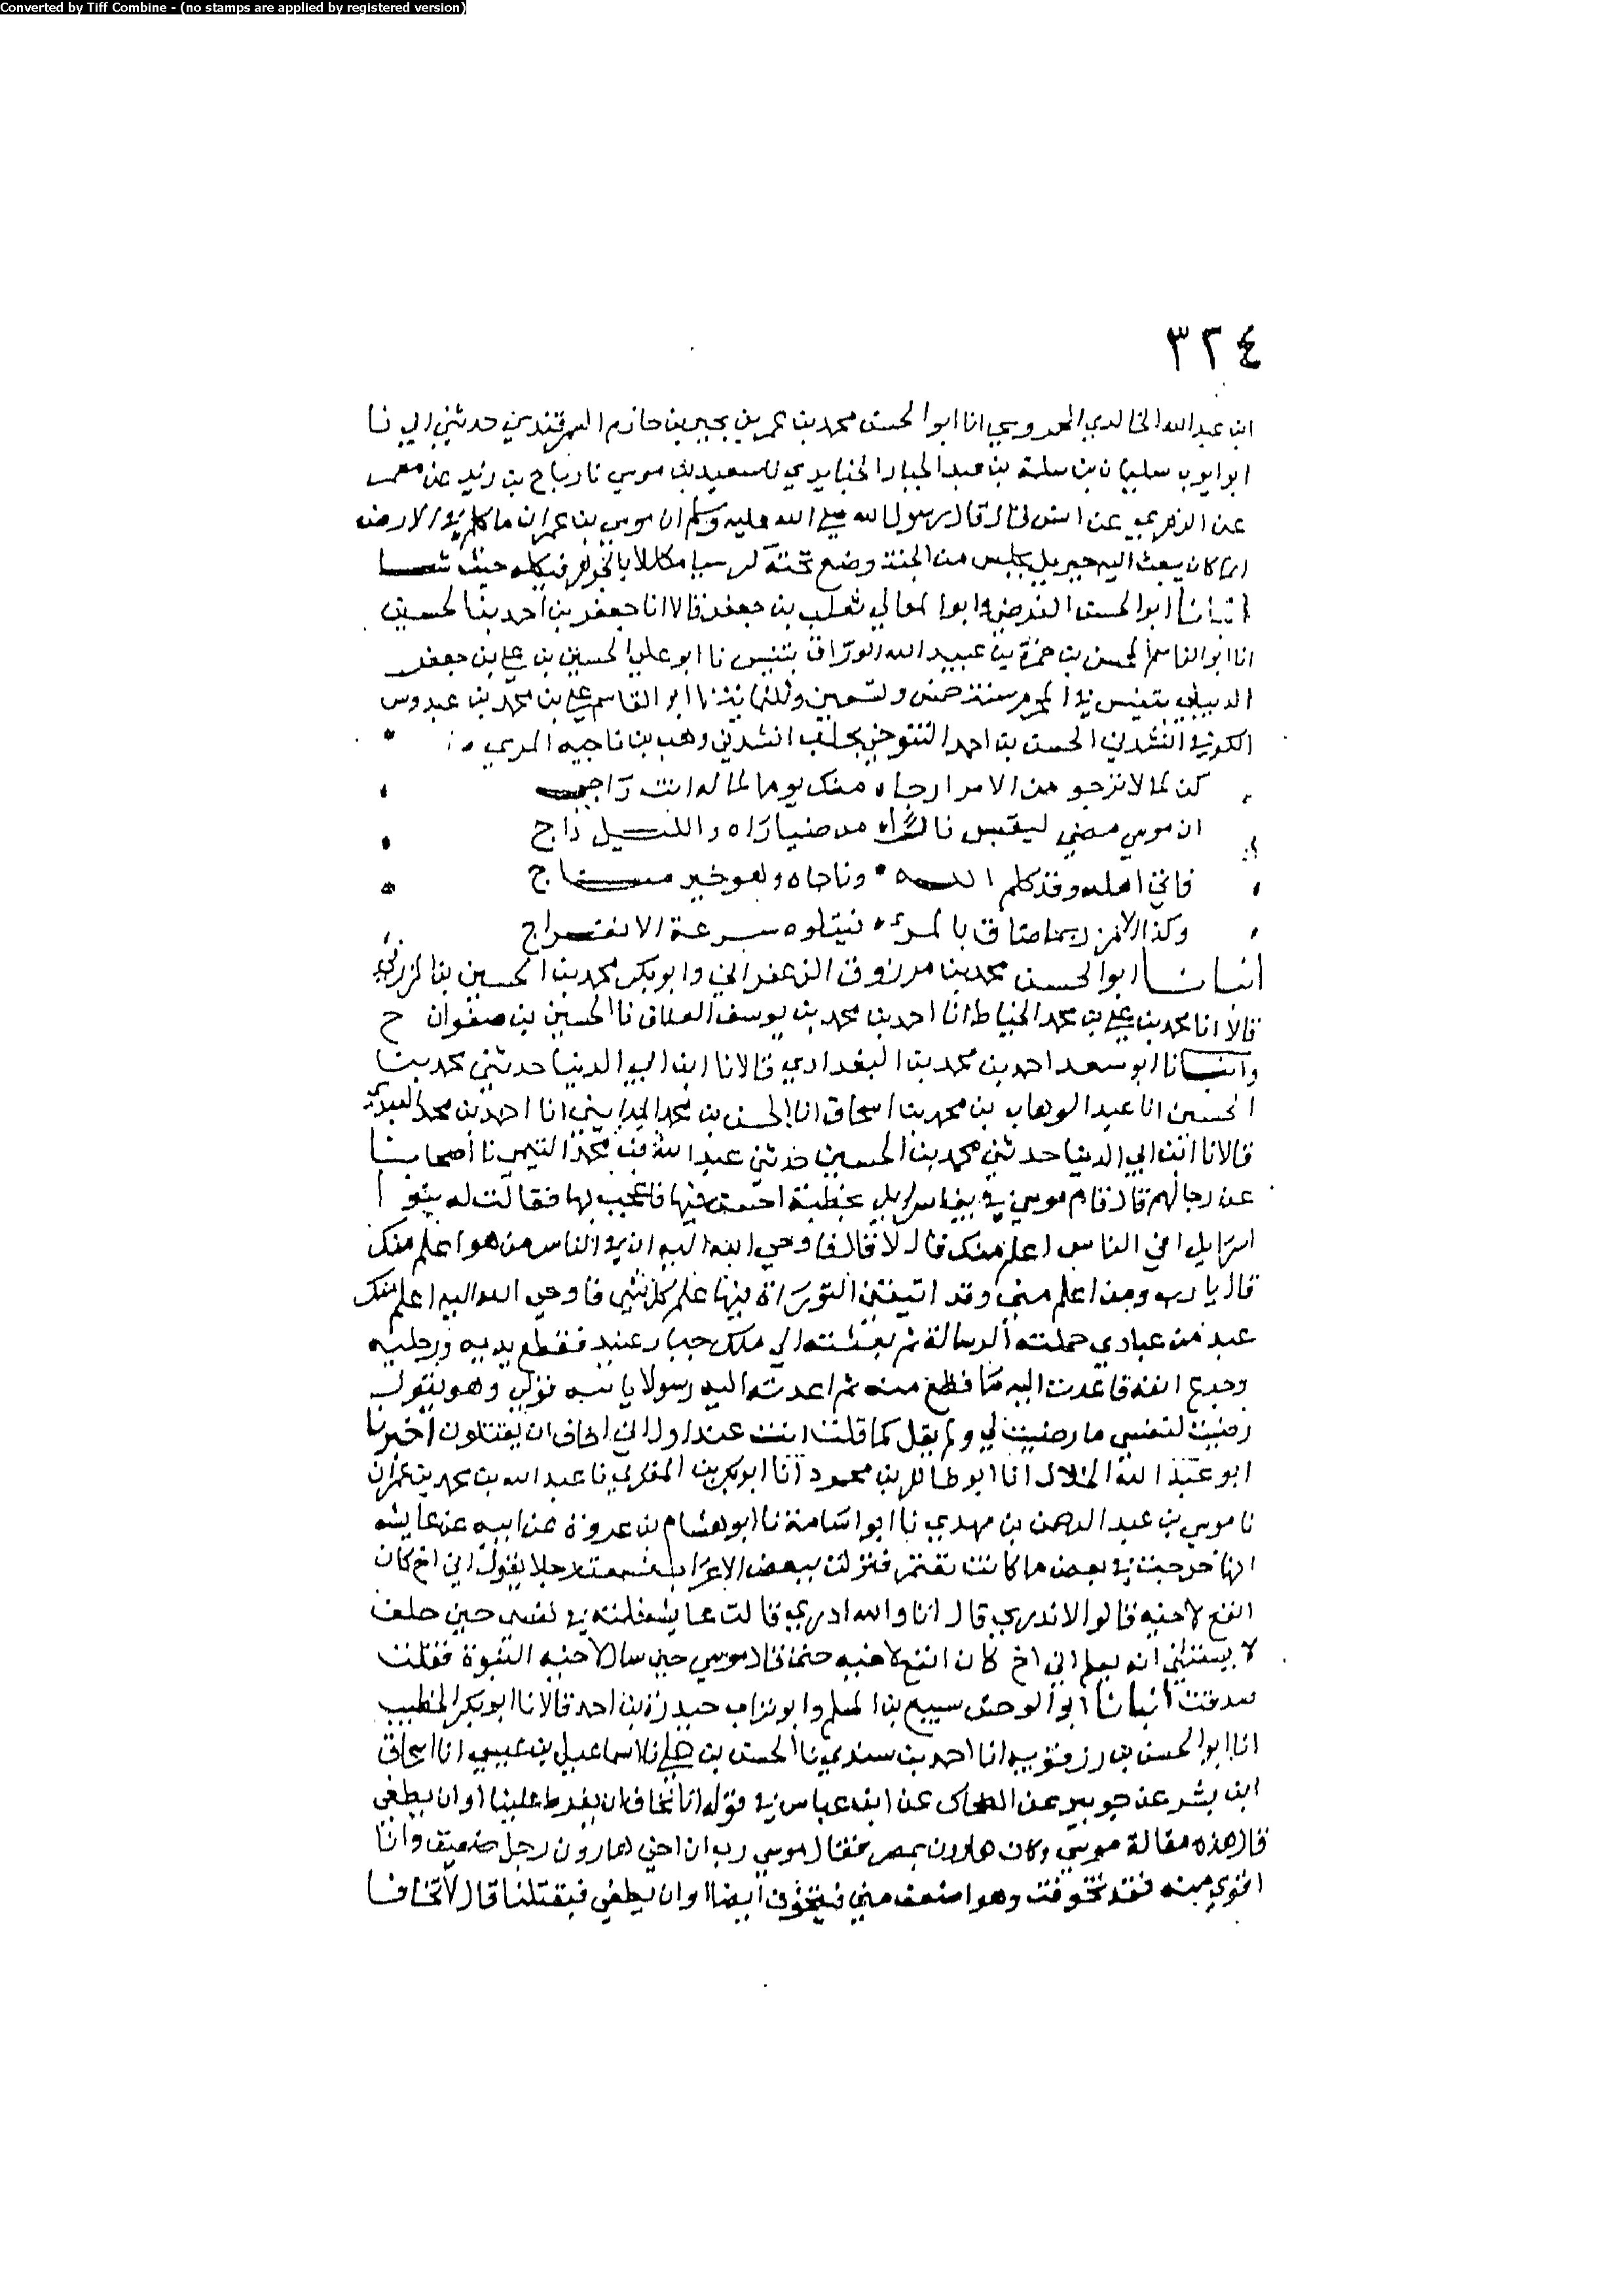 Converted by Tiff Combine - (no stamps are applied by registered version)
٣٢٤
ابن عبد الله الخالدي الهروي انا ابو الحسن محمد بن عمر بن بجير بن حازم السمرقندي حدثني ابي نا
ابو ايوب سليمان بن سلمة بن عبد الجبار الخبايري نا سعيد بن موسى نا رباح بن زيد عن معمر
عن الزهري عن انس قال قال رسول الله صلى الله عليه وسلم ان موسى بن عمران ما كلم في الارض
انما كان يبعث اليه جبريل بمجلس من الجنة وضع تحته كرسيا مكللا بالجوهر فيكلمه حيث شا
انبانا ابو الحسن الفرضي وابو المعالي ثعلب بن جعفر قالا انا جعفر بن احمد بن الحسين
انا ابو القاسم الحسن بن حمزة بن عبيد الله الوراق بتنيس نا ابو علي الحسين بن علي بن جعفر
الدبيلي بتنيس في المحرم سنة خمس وتسعين وثلثماية نا ابو القاسم علي بن محمد بن عبدوس
الكوفي انشدني الحسن بن احمد التنوخي بحلب انشدني وهب بن ناجيه المري
كن لما لا ترجو من الامر ارجا ه منك يوما لما له انت راجي
ان موسى مضى ليقبس نارا ه من ضيا راه والليل داج
فاتى اهله وقد كلم الله ه وناجاه وهو خير مناج
وكذا الامر ربما ضاق بالمرء ه فيتلوه سرعة الانفراج
انبانا ابو الحسن محمد بن مرزوق الزعفراني وابو بكر محمد بن الحسين بن المزرفي
قالا انا محمد بن علي بن محمد الخياط انا احمد بن محمد بن يوسف العلاف نا الحسين بن صفوان ح
وانبانا ابو سعد احمد بن محمد بن البغدادي قالا نا ابن ابي الدنيا حدثني محمد بن
الحسين انا عبد الوهاب بن محمد بن اسحاق انا الحسن بن محمد المديني انا احمد بن محمد العبدي
قالا نا ابن ابي الدنيا حدثني محمد بن الحسين حدثني عبد الله بن محمد التيمي نا اصحابنا
عن رجالهم قال قام موسى في بني اسرايل بخطبة احسن فيها فاعجب بها فقالت له بنوا
اسرايل افي الناس اعلم منك قال لا قال فاوحى الله اليه ان في الناس من هو اعلم منك
قال يا رب ومن اعلم مني وقد اتيتني التوراة فيها علم كل شي فاوحى الله اليه اعلم منك
عبد من عبادي حملته الرسالة ثم بعثته الى ملك جبار عنيد فقطع يديه ورجليه
وجدع انفه فاعدت اليه ما قطع منه ثم اعدته اليه رسولا ثانيه فولى وهو يقول
رضيت لنفسي ما رضيت لي ولم يقل كما قلت انت عند اول اني اخاف ان يقتلون اخبرنا
ابو عبد الله الخلال انا ابو طاهر بن محمود انا ابو بكر بن المقري نا عبد الله بن محمد بن عمران
نا موسى بن عبد الرحمن بن مهدي نا ابو اسامة نا ابو هشام بن عروة عن ابيه عن عايشه
انها خرجت في بعض ما كانت تعتمر فنزلت ببعض الاعراب فسمعت رجلا يقول اي اخ كان
انفع لاخيه قالوا لا ندري قال انا والله ادري قالت عايشه فقلت في نفسي حين حلف
لا يستثني انه يعلم اي اخ كان انفع لاخيه حتى قال موسى حين سال لاخيه النبوة فقلت
صدقت انبانا ابو الوحش سبيع بن المسلم وابو تراب حيدرة بن احمد قالا نا ابو بكر الخطيب
انا ابو الحسن بن رزقويه انا احمد بن سندي نا الحسن بن علي نا اسماعيل بن عيسى انا اسحاق
ابن بشر عن جويبر عن الضحاك عن ابن عباس في قوله اننا نخاف ان يفرط علينا او ان يطغى
قال هذه مقالة موسى وكان هارون بمصر فقال موسى رب ان اخي هارون رجل ضعيف وانا
اقوى منه فقد تخوفت وهو اضعف مني فيتخوف ايضا او ان يطغى فيقتلنا قال لا تخافا